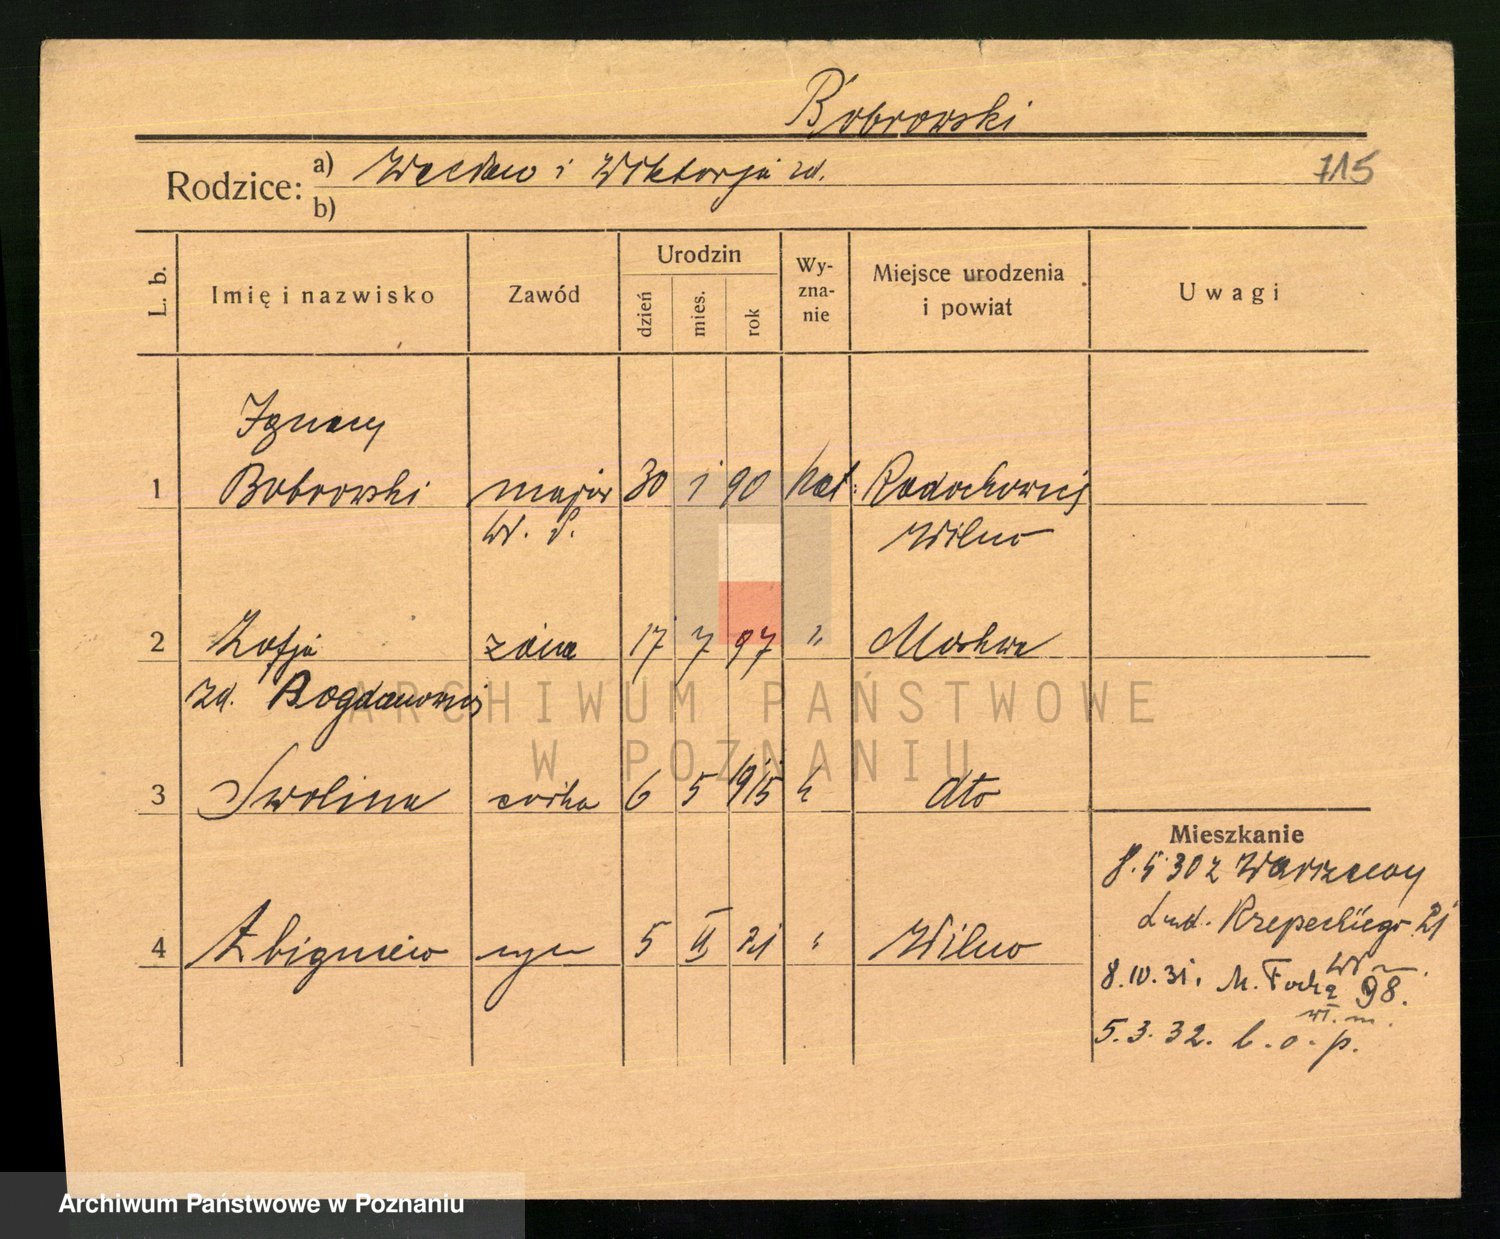 Bobrowski
Rodzice: a) Wacław i Wiktorja zd. 715
b)
L. b. Imię i nazwisko Zawód Urodzin dzień mies. rok Wy-zna-nie Miejsce urodzenia i powiat Uwagi
Ignacy
1 Bobrowski major 30 1 90 kat.
W. P. Wilno
2 Zofja żona 17 7 97 " Moskwa
zd. Bogdanowicz
ARCHIWUM PAŃSTWOWE
W POZNANIU
3 córka 6 5 1915 dto
Mieszkanie
8. 5 30 z Warszawy
Rzepeckiego 21
4 Zbigniew syn 5 II 21 " Wilno
8.10.31. M. Focha 98.
wł. m.
5.3.32. b. o. p.
Archiwum Państwowe w Poznaniu